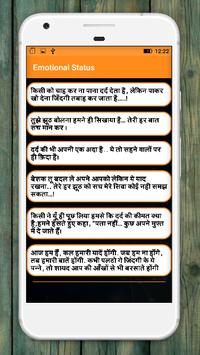 12:22
Emotional Status
किसी को चाह कर ना पाना दर्द देता है, लेकिन पाकर
खो देना जिंदगी तबाह कर जाता है....!
तुझे झूठ बोलना हमने ही सिखाया है... तेरी हर बात
सच मान कर।
दर्द की भी अपनी एक अदा है.. ये तो सहने वालों पर
ही फ़िदा है।
बेशक तू बदल ले अपने आपको लेकिन ये याद
रखना.. तेरे हर झूठ को सच मेरे सिवा कोई नही समझ
सकता...!
किसी ने यूँ ही पूछ लिया हमसे कि दर्द की कीमत क्या
है?हमने हंसते हुए कहा, "पता नहीं... कुछ अपने मुफ्त में
दे जाते हैं।
आज हम हैं, कल हमारी यादें होंगी. जब हम ना होंगे,
तब हमारी बातें होंगी. कभी पलटो गे जिंदगी के ये
पन्ने , तो शायद आप की आँखों से भी बरसाते होंगी